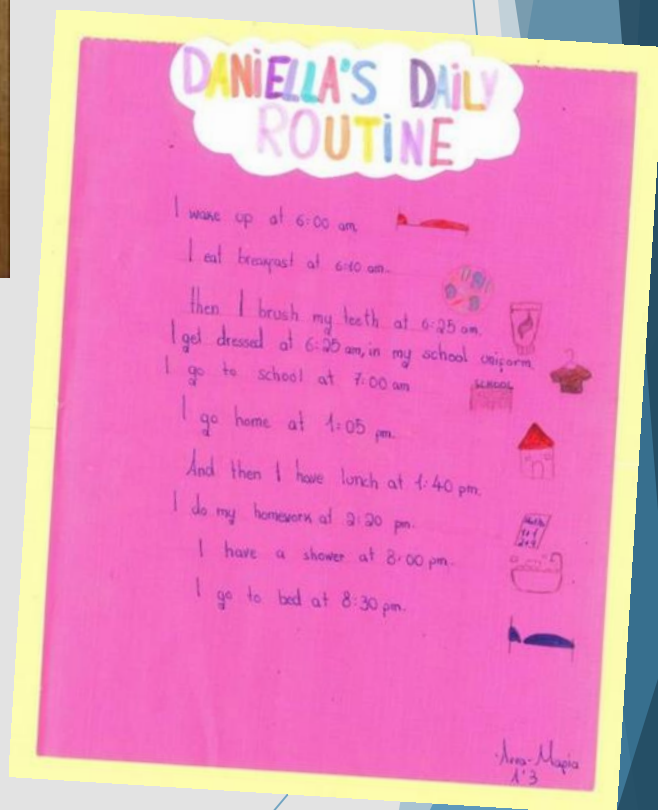 DANiELLA'S DAiLY
ROUTiNE
I wake up at 6:00 am.
I eat breakfast at 6:10 am.
then I brush my teeth at 6:25 am.
I get dressed at 6:25 am, in my school uniform.
I go to school at 7:00 am
SCHOOL
I go home at 1:05 pm.
And then I have lunch at 1:40 pm.
I do my homework at 2:20 pm.
I have a shower at 8:00 pm.
I go to bed at 8:30 pm.
Άννα-Μαρία